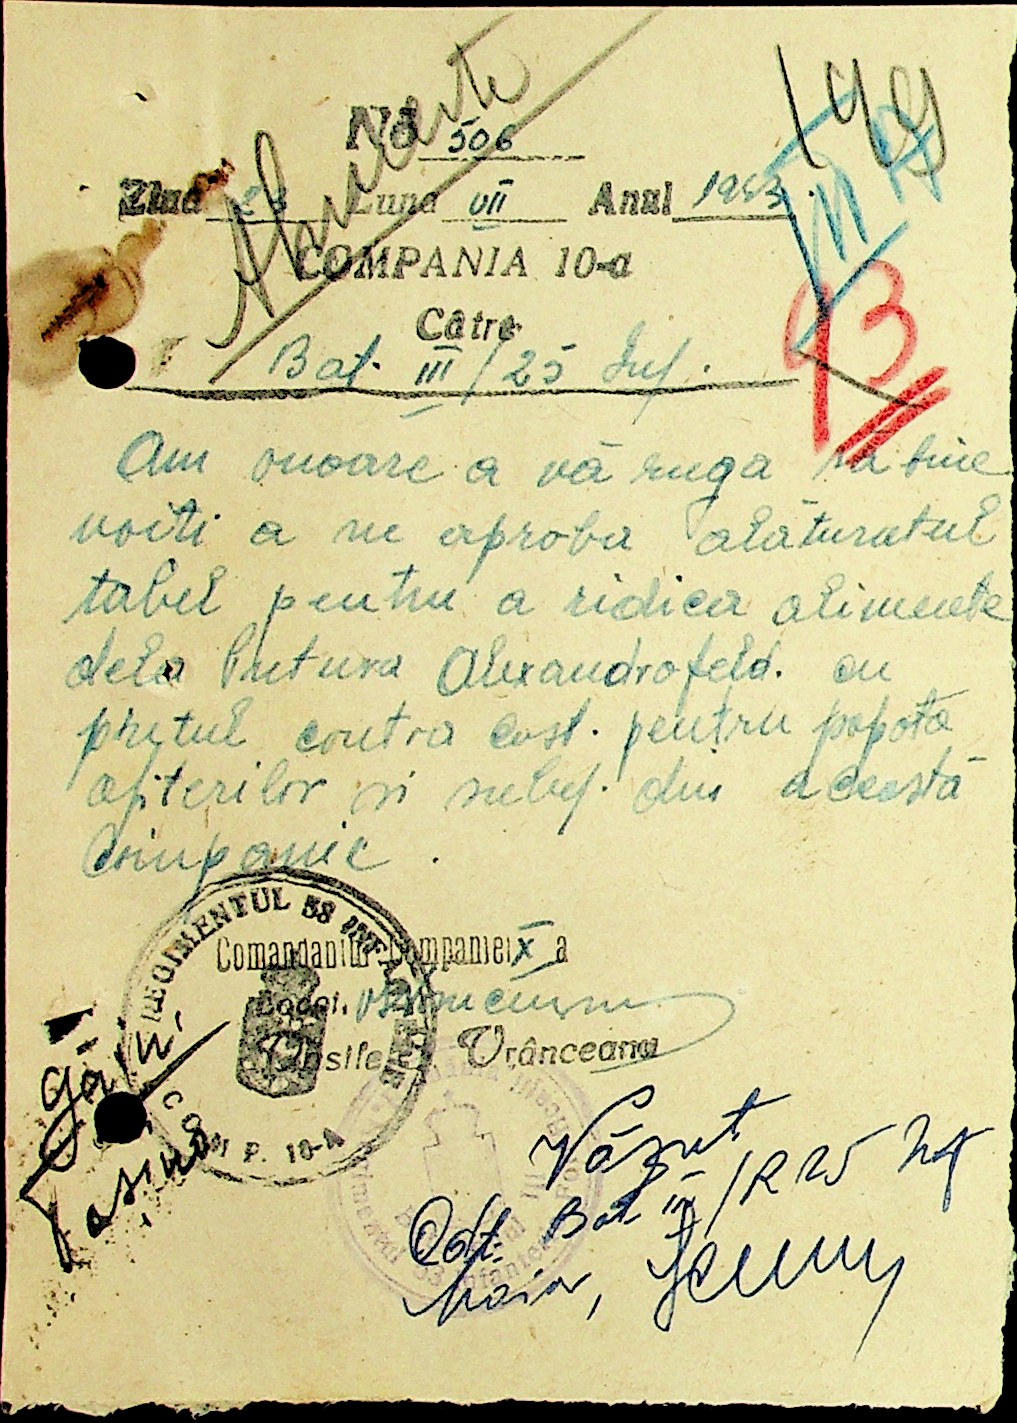 199
No 506
Ziua 23 Luna VII Anul 1943
COMPANIA 10-a
Către
Bat. III/25 Inf.
93
Am onoare a vă ruga să bine
voiti a ne aproba alăturatul
tabel pentru a ridica alimente
dela Alexandrofeld. cu
prețul contra cost. pentru popota
ofiterilor si subof. din aceastā
Companie.
REGIMENTUL 38 INFANTERIE
COMP. 10-A
Comandantul Companiei X a
Vasile Vrânceanu
Văzut
Cdt. Bat. III/R 25 Inf
Maior,